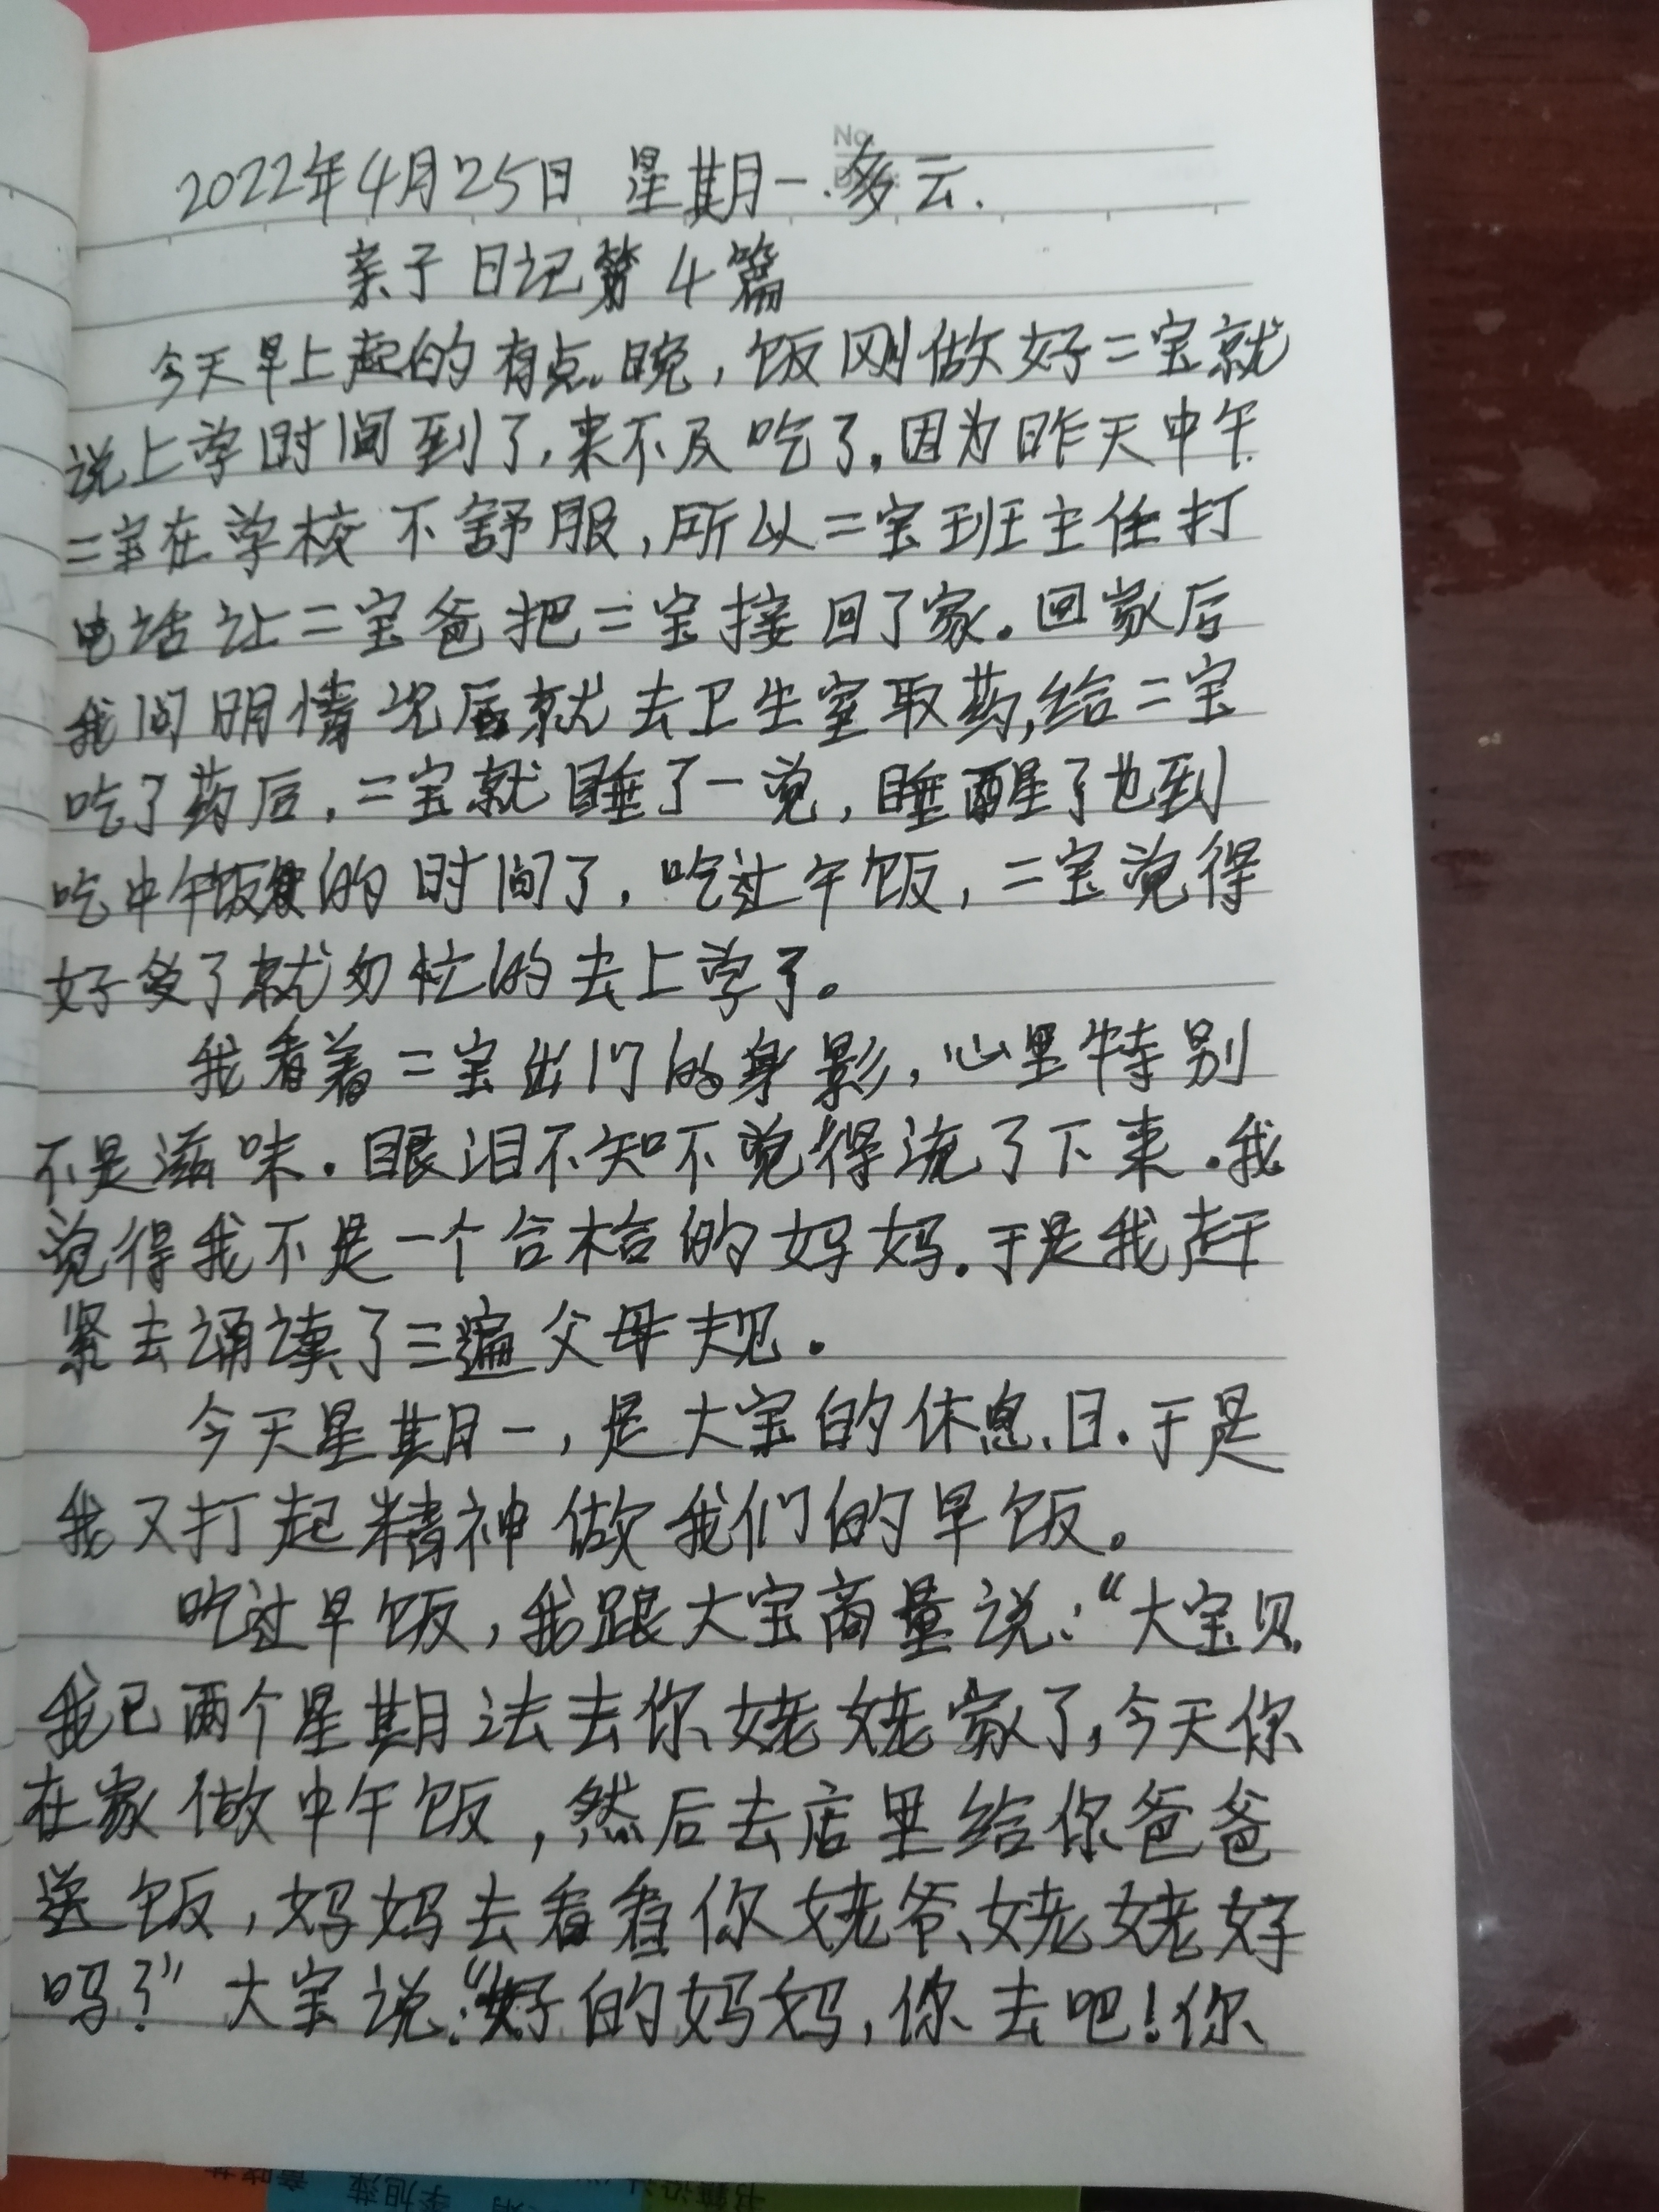 No
2022年4月25日 星期一.多云.
亲子日记第4篇
今天早上起的有点晚,饭刚做好二宝就
说上学时间到了,来不及吃了。因为昨天中午
二宝在学校不舒服,所以二宝班主任打
电话让二宝爸把二宝接回了家。回家后
我问明情况后就去卫生室取药,给二宝
吃了药后,二宝就睡了一觉,睡醒了也到
吃中午饭的时间了,吃过午饭,二宝觉得
好受了就匆忙的去上学了。
我看着二宝出门的身影,心里特别
不是滋味.眼泪不知不觉得流了下来.我
觉得我不是一个合格的妈妈.于是我赶
紧去诵读了三遍父母规.
今天星期一,是大宝的休息日.于是
我又打起精神做我们的早饭。
吃过早饭,我跟大宝商量说:“大宝贝,
我已两个星期没去你姥姥家了,今天你
在家做中午饭,然后去店里给你爸爸
送饭,妈妈去看看你姥爷、姥姥好
吗?”大宝说:“好的妈妈,你去吧!你